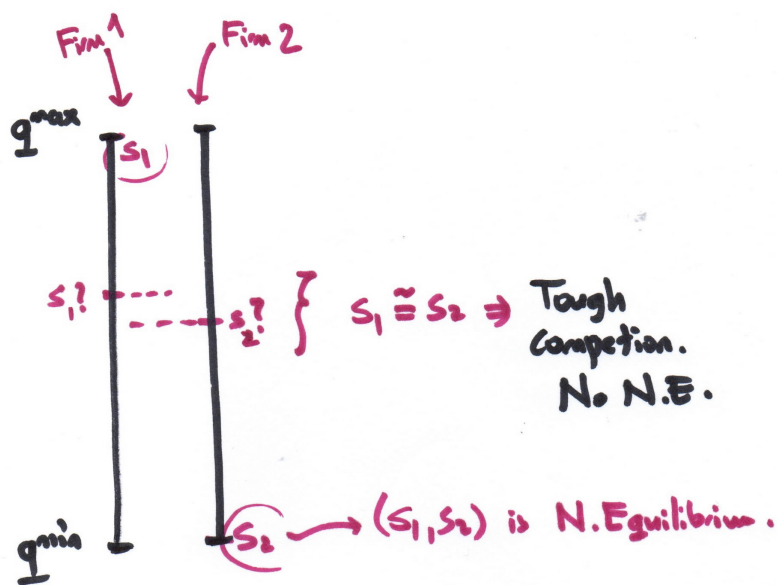 Firm 1
Firm 2
q^max
S₁
S₁?
S₂?
S₁ ≅ S₂ ⇒ Tough
competion.
No N.E.
q^min
S₂ → (S₁, S₂) is N. Equilibrium.